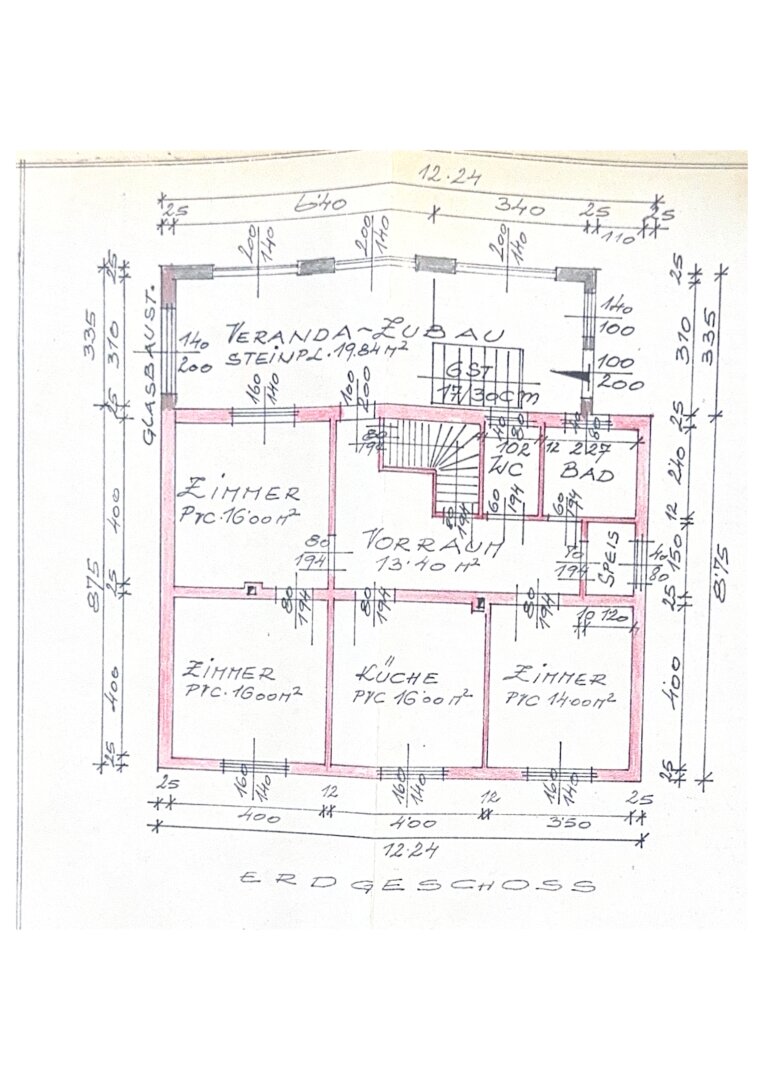 12.24
25
6.40
340
25
25
110
200
140
200
140
200
140
25
310
25
335
GLASBAUST.
VERANDA-ZUBAU
STEINPL. 19.84 M²
140
200
GST
17/30 CM
140
100
100
200
25
310
25
335
160
140
100
200
80
194
40
80
102
WC
12
227
BAD
240
12
150
25
400
25
875
400
25
400
25
875
ZIMMER
PVC. 16.00 M²
80
194
VORRAUM
13.40 M²
80
194
60
194
60
194
70
194
SPEIS
40
80
10
120
80
194
80
194
80
194
ZIMMER
PVC. 16.00 M²
KÜCHE
PVC 16.00 M²
ZIMMER
PVC 14.00 M²
160
140
160
140
160
140
25
400
12
400
12
350
25
12.24
ERDGESCHOSS